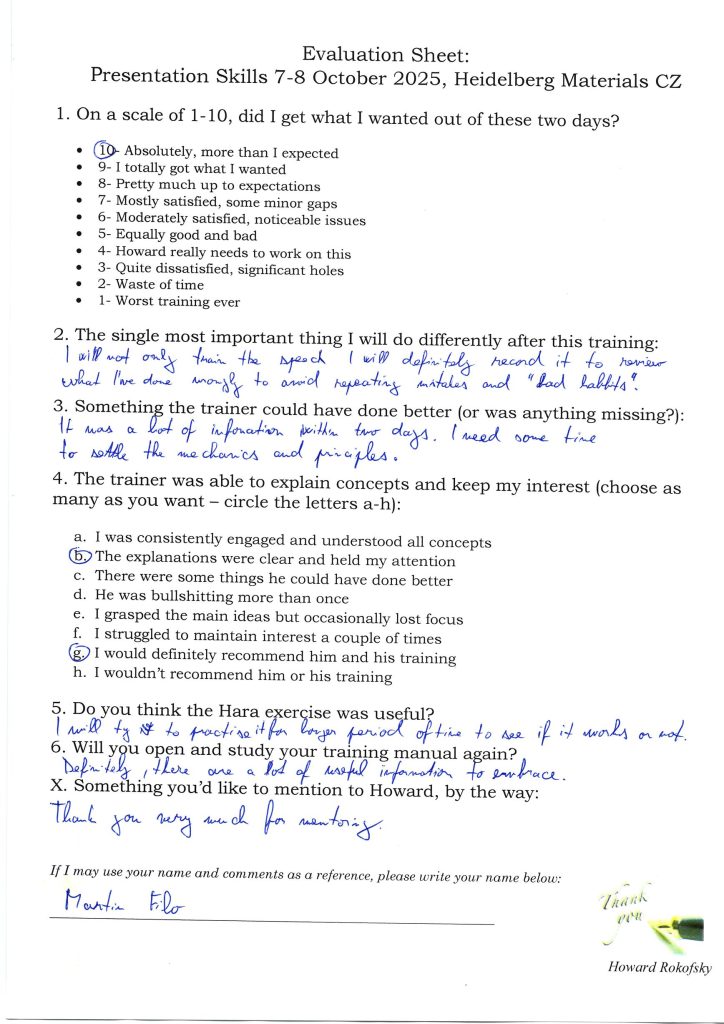 Evaluation Sheet:
Presentation Skills 7-8 October 2025, Heidelberg Materials CZ
1. On a scale of 1-10, did I get what I wanted out of these two days?
• 10- Absolutely, more than I expected
• 9- I totally got what I wanted
• 8- Pretty much up to expectations
• 7- Mostly satisfied, some minor gaps
• 6- Moderately satisfied, noticeable issues
• 5- Equally good and bad
• 4- Howard really needs to work on this
• 3- Quite dissatisfied, significant holes
• 2- Waste of time
• 1- Worst training ever
2. The single most important thing I will do differently after this training:
I will not only train the speech I will definitely record it to review
what I've done wrongly to avoid repeating mistakes and "bad habbits".
3. Something the trainer could have done better (or was anything missing?):
It was a lot of infomation within two days. I need some time
to settle the mechanics and priciples.
4. The trainer was able to explain concepts and keep my interest (choose as
many as you want – circle the letters a-h):
a. I was consistently engaged and understood all concepts
b. The explanations were clear and held my attention
c. There were some things he could have done better
d. He was bullshitting more than once
e. I grasped the main ideas but occasionally lost focus
f. I struggled to maintain interest a couple of times
g. I would definitely recommend him and his training
h. I wouldn't recommend him or his training
5. Do you think the Hara exercise was useful?
I will try to practise it for longer period of time to see if it works or not.
6. Will you open and study your training manual again?
Definitely, there are a lot of useful information to embrace.
X. Something you'd like to mention to Howard, by the way:
Thank you very much for mentoring.
If I may use your name and comments as a reference, please write your name below:
Martin Filo
Thank
you
Howard Rokofsky